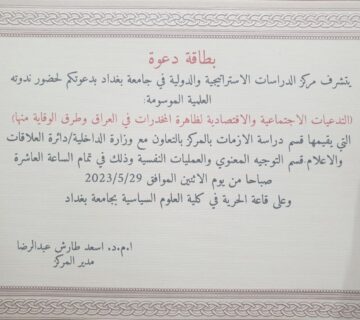 بطاقة دعوة
يتشرف مركز الدراسات الاستراتيجية والدولية في جامعة بغداد بدعوتكم لحضور ندوته
العلمية الموسومة:
(التدعيات الاجتماعية والاقتصادية لظاهرة المخدرات في العراق وطرق الوقاية منها)
التي يقيمها قسم دراسة الازمات بالمركز بالتعاون مع وزارة الداخلية/دائرة العلاقات
والاعلام قسم التوجيه المعنوي والعمليات النفسية وذلك في تمام الساعة العاشرة
صباحا من يوم الاثنين الموافق 2023/5/29
وعلى قاعة الحرية في كلية العلوم السياسية بجامعة بغداد
ا.م.د. اسعد طارش عبدالرضا
مدير المركز